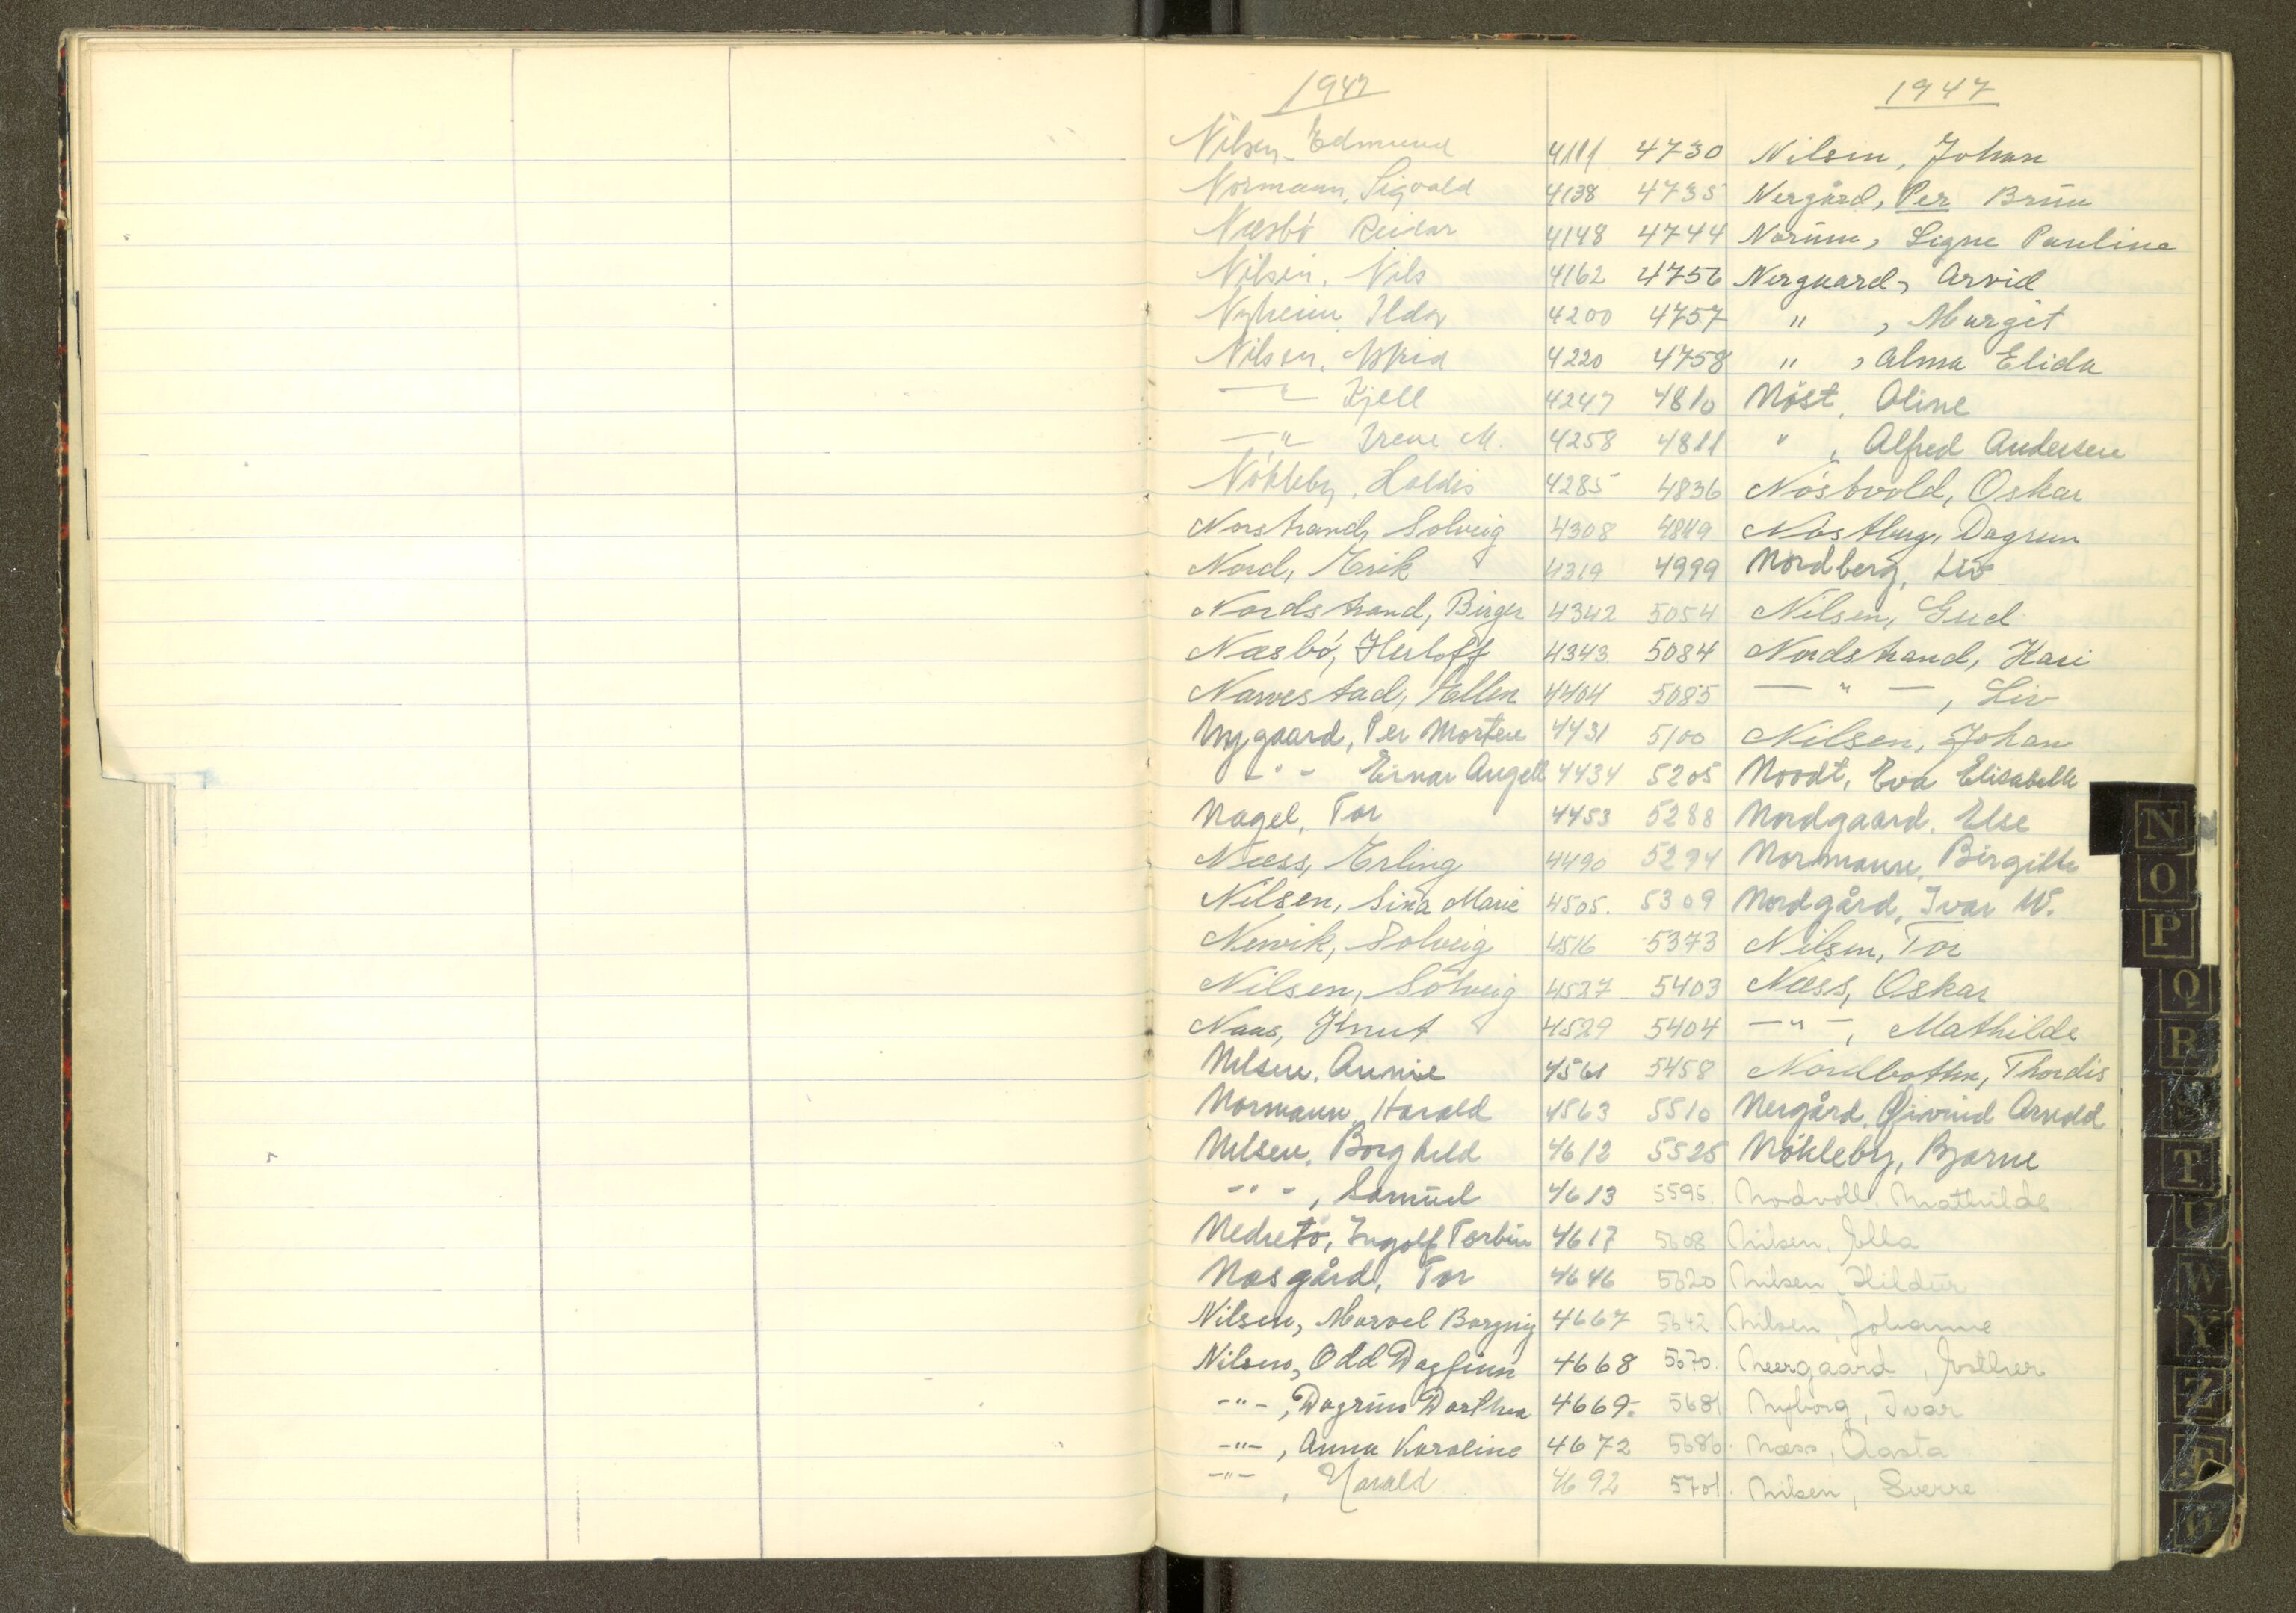 1947 1947
Nilsen, Edmund 4111 4730 Nilsen, Johan
Normann, Sigvald 4138 4735 Nergård, Per Brun
Næsbö Reidar 4148 4744 Norum, Signe Pauline
Nilsen, Nils 4162 4756 Nerguard, Arvid
Nyheim, Ildy 4200 4757 " , Margit
Nilsen, Astrid 4220 4758 " , Alma Elida
—"— Kjell 4247 4810 Nöst, Oline
—"— Irene M. 4258 4811 " , Alfred Andersen
Nökleby, Haldis 4285 4836 Nösbvold, Oskar
Norstrand, Solveig 4308 4849 Dagrun
Nord, Erik 4319 4999 Nordberg, Liv
Nordstrand, Birger 4342 5054 Nilsen, Gud
Næsbö, Herloff 4343 5084 Nordstrand, Kari
Narvestad, Ellen 4404 5085 — " — , Liv
Nygaard, Per Morten 4431 5100 Nilsen, Johan
- " - Einar Angell 4434 5205 Noodt, Eva Elisabeth
Nagel, Tor 4453 5288 Nordgaard, Else
Næss, Erling 4490 5294 Normann, Birgitte
Nilsen, Sina Marie 4505. 5309 Nordgård, Ivar W.
Nervik, Solveig 4516 5373 Nilsen, Tor
Nilsen, Solveig 4527 5403 Næss, Oskar
Naas, Knut 4529 5404 — " — , Mathilde
Nilsen, Annie 4561 5458 Nordbotten, Thordis
Normann, Harald 4563 5510 Nergård, Öivind Arnold
Nilsen, Borghild 4612 5525 Nökleby, Bjarne
- " - , Samuel 4613 5595. Nordvoll, Mathilde
Nedretö, Ingolf Torbin 4617 5608 Nilsen, Ella
Næsgård, Tor 4646 5620 Nilsen, Hildur
Nilsen, Marvel Borgny 4667 5642 Nilsen, Johanne
Nilsen, Odd Dagfinn 4668 5670. Neergaard, Esther
-"- , Dagrun Dorthea 4669. 5681 Nyborg, Ivar
-"- , Anna Karoline 4672 5686. Næss, Aasta
-"- , Harald 4692 5701. Nilsen, Sverre
N
O
P
Q
R
S
T
U
W
Y
Z
Æ
Ö